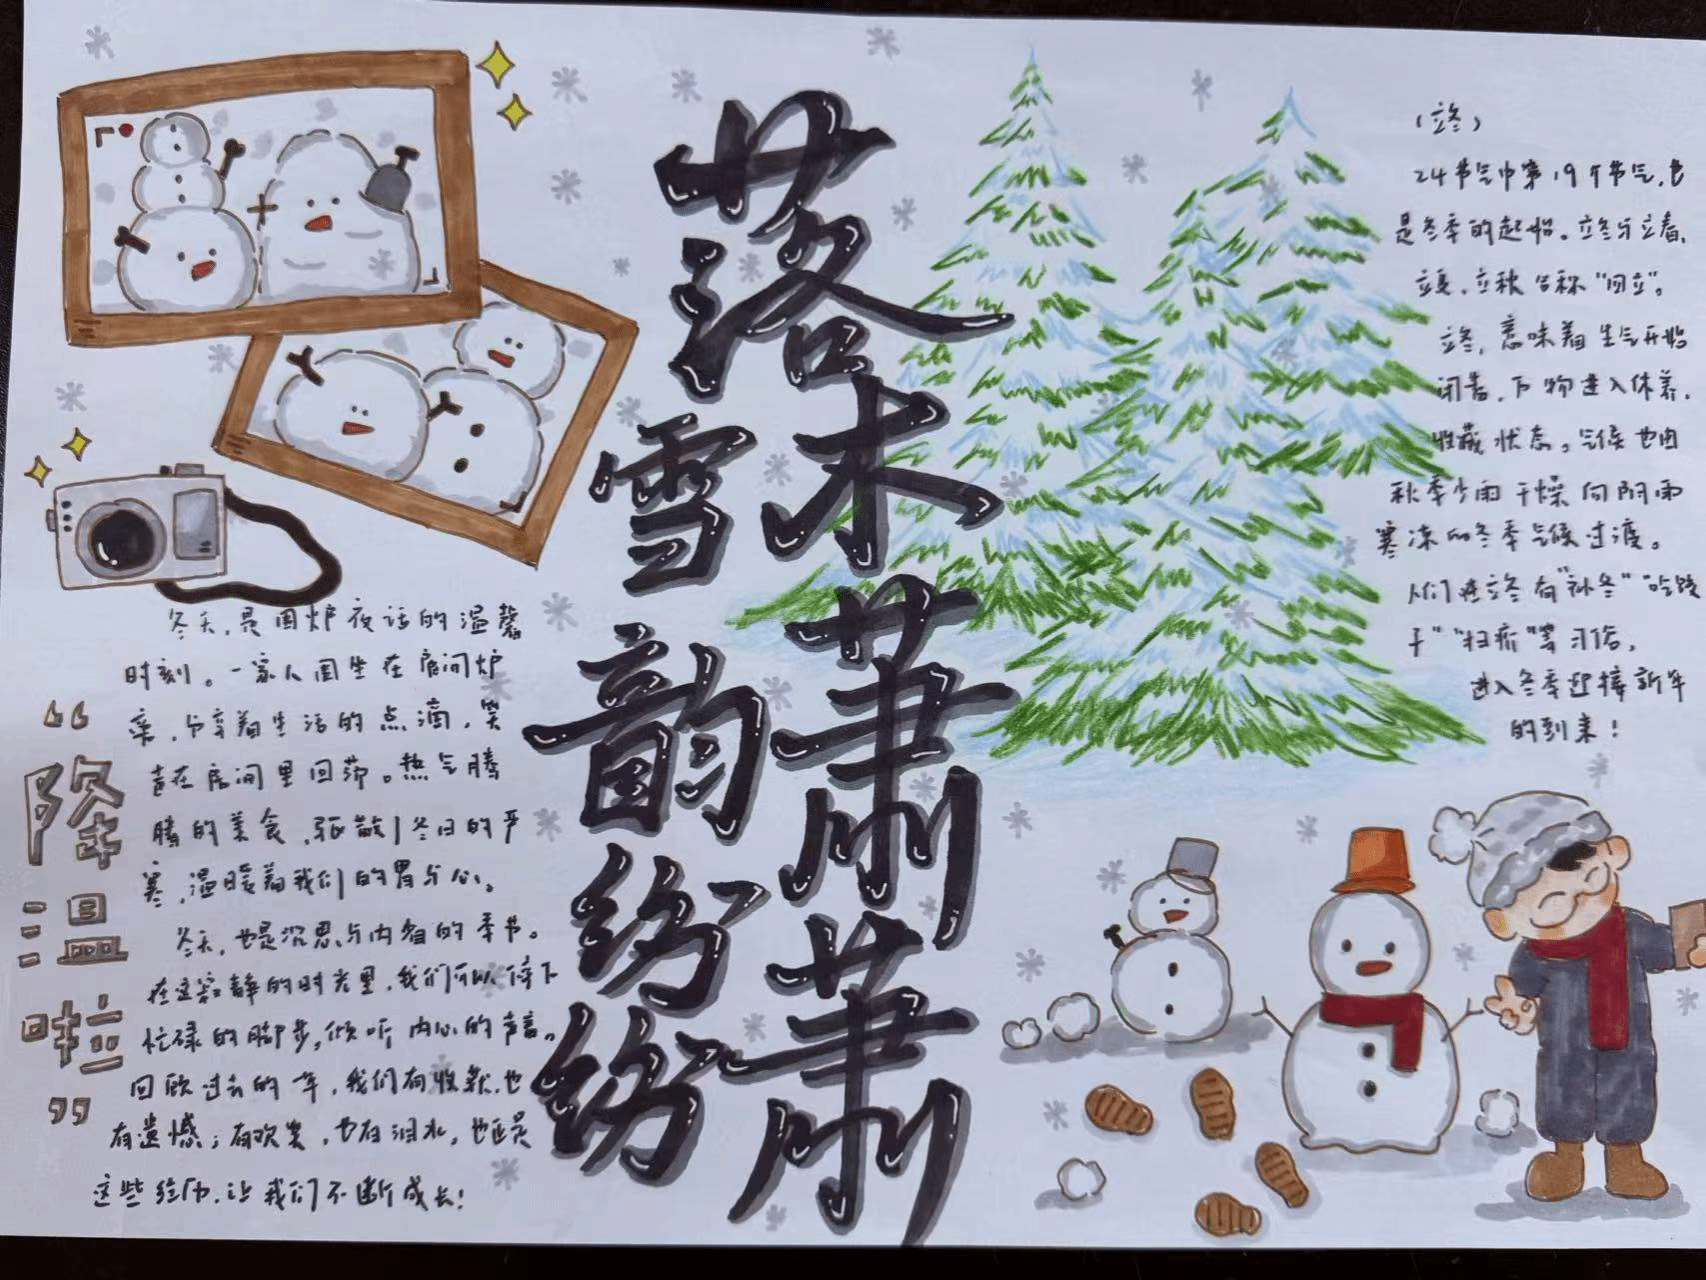 落木萧萧
雪韵纷纷
“降温啦”
冬天，是围炉夜话的温馨
时刻。一家人围坐在房间炉
旁，分享着生活的点滴，笑
声在房间里回荡。热气腾
腾的美食，驱散了冬日的严
寒，温暖着我们的胃与心。
冬天，也是沉思与内省的季节。
在这寂静的时光里，我们可以停下
忙碌的脚步，倾听内心的声音。
回顾过去的一年，我们有收获，也
有遗憾；有欢笑，也有泪水，也正是
这些经历，让我们不断成长！
（立冬）
24节气中第19个节气，也
是冬季的起始。立冬与立春、
立夏、立秋合称“四立”。
立冬，意味着生气开始
闭蓄，万物进入休养、
收藏状态。气候也由
秋季少雨干燥向阴雨
寒冻的冬季气候过渡。
人们在立冬有“补冬”“吃饺
子”“扫疥”等习俗，
进入冬季迎接新年
的到来！